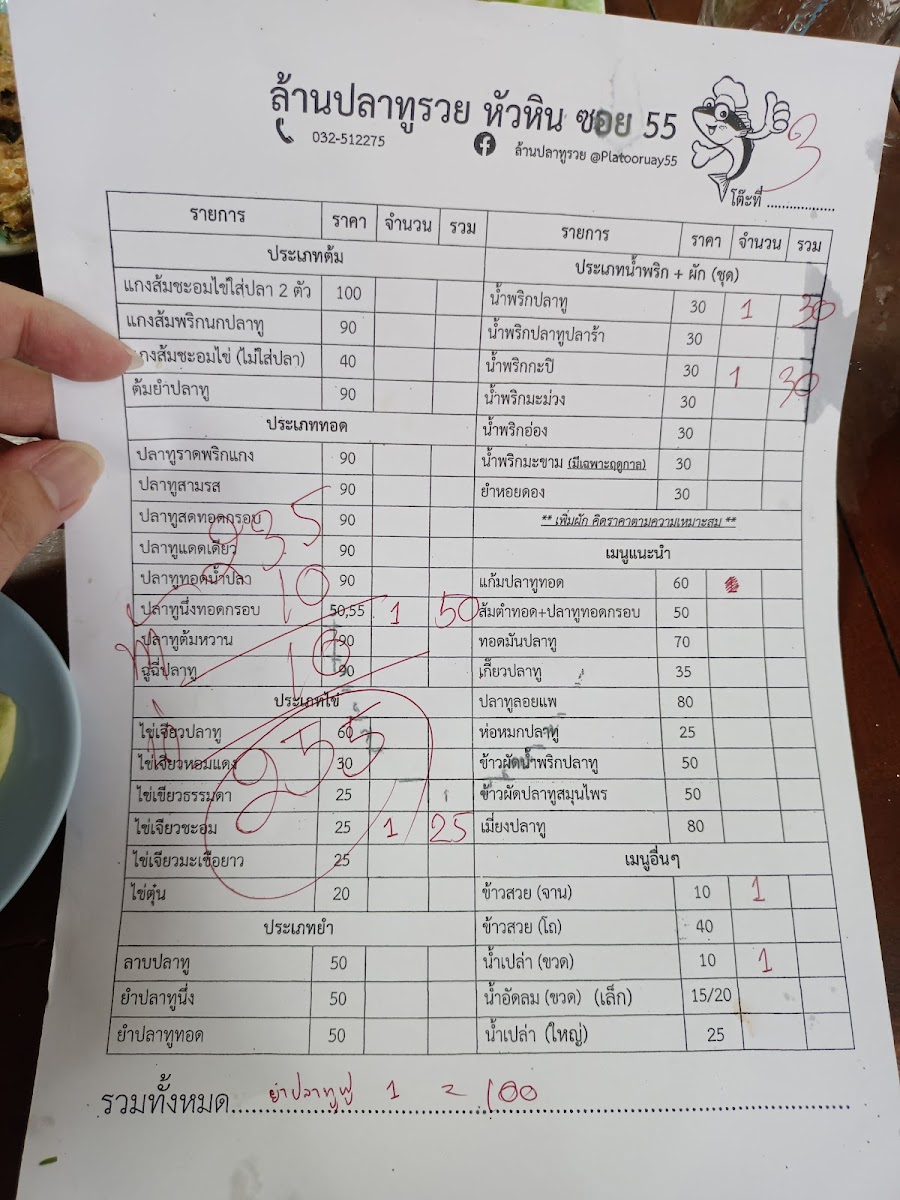 ล้านปลาทูรวย หัวหิน ซอย 55
032-512275 ล้านปลาทูรวย @Platooruay55
โต๊ะที่ .................. 3
รายการ ราคา จำนวน รวม
ประเภทต้ม
แกงส้มชะอมไข่ใส่ปลา 2 ตัว 100
แกงส้มพริกนกปลาทู 90
กงส้มชะอมไข่ (ไม่ใส่ปลา) 40
ต้มยำปลาทู 90
ประเภททอด
ปลาทูราดพริกแกง 90
ปลาทูสามรส 90
ปลาทูสดทอดกรอบ 90
ปลาทูแดดเดียว 90
ปลาทูทอดน้ำปลา 90
ปลาทูนึ่งทอดกรอบ 50,55 1 50
ปลาทูต้มหวาน 90
ฉู่ฉี่ปลาทู 90
ประเภทไข่
ไข่เจียวปลาทู 60
ไข่เจียวหอมแดง 30
ไข่เขียวธรรมดา 25
ไข่เจียวชะอม 25 1 25
ไข่เจียวมะเขือยาว 25
ไข่ตุ๋น 20
ประเภทยำ
ลาบปลาทู 50
ยำปลาทูนึ่ง 50
ยำปลาทูทอด 50
235
10
10
255
รายการ ราคา จำนวน รวม
ประเภทน้ำพริก + ผัก (ชุด)
น้ำพริกปลาทู 30 1 30
น้ำพริกปลาทูปลาร้า 30
น้ำพริกกะปิ 30 1 30
น้ำพริกมะม่วง 30
น้ำพริกอ่อง 30
น้ำพริกมะขาม (มีเฉพาะฤดูกาล) 30
ยำหอยดอง 30
** เพิ่มผัก คิดราคาตามความเหมาะสม **
เมนูแนะนำ
แก้มปลาทูทอด 60
ส้มตำทอด+ปลาทูทอดกรอบ 50
ทอดมันปลาทู 70
เกี๊ยวปลาทู 35
ปลาทูลอยแพ 80
ห่อหมกปลาทู 25
ข้าวผัดน้ำพริกปลาทู 50
ข้าวผัดปลาทูสมุนไพร 50
เมี่ยงปลาทู 80
เมนูอื่นๆ
ข้าวสวย (จาน) 10 1
ข้าวสวย (โถ) 40
น้ำเปล่า (ขวด) 10 1
น้ำอัดลม (ขวด) (เล็ก) 15/20
น้ำเปล่า (ใหญ่) 25
รวมทั้งหมด.... ยำปลาทูฟู 1 = 100